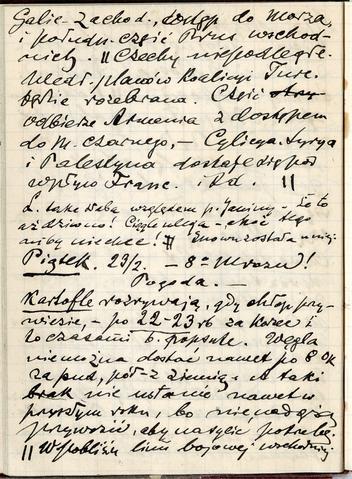 Galic. Zachod., dostęp do morza,
i połudn. część Prus wschod-
nich. || Czechy niepodległe.
Wedł. planów Koalicyi Turc.
będzie rozebrana. Część
odbierze Armenia z dostępem
do m. Czarnego, – Cylicya, Syrya
i Palestyna dostałe się pod
wpływ Franc. itd. ||
Ł. taka słaba względem p. Janiny – że to
aż dziwno! Ciągle ulega – choć tego
niby nie chce! || Znowu została u niej.
Piątek. 23/2. – 8° Mrozu!
Pogoda. –
Kartofle rozrywają, gdy chłop przy-
wiezie, – po 22-23 rb za korzec i
to czasami b. popsute. Węgla
nie można dostać nawet po 8
za pud, pół z ziemią, – i taki
brak nie ustanie nawet w
przyszłym roku, bo nie nadążą
przywozić, aby nasycić potrzebę.
|| W pobliżu linii bojowej wschodniej